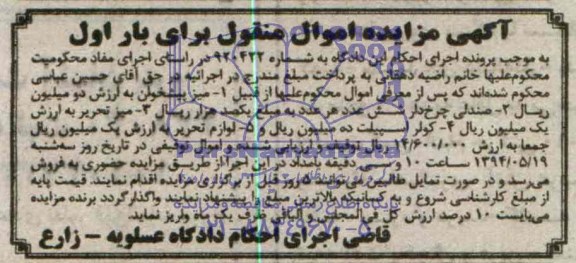 آگهی مزایده اموال منقول برای بار اول
به موجب پرونده اجرای احکام این دادگاه به شماره ۹۲۰۴۲۲ در راستای اجرای مفاد محکومیت
محکوم‌علیها خانم راضیه دهقانی به پرداخت مبلغ مندرج در اجرائیه در حق آقای حسین عباسی
محکوم شده‌اند که پس از معرفی اموال محکوم‌علیها از قبیل ۱- میز پیشخوان به ارزش دو میلیون
ریال ۲- صندلی چرخ‌دار شش عدد هر عدد به مبلغ یکصد هزار ریال ۳- میز تحریر به ارزش
یک میلیون ریال ۴- کولر اسپیلت ده میلیون ریال و ۵- لوازم تحریر به ارزش یک میلیون ریال
جمعا به ارزش ۱۴/۶۰۰/۰۰۰ ریال توقیف و ارزیابی شده و اموال توقیفی در تاریخ روز سه‌شنبه
۱۳۹۴/۰۵/۱۹ ساعت ۱۰ و سی دقیقه بامداد در این اجرا از طریق مزایده حضوری به فروش
می‌رسد و در صورت تمایل طالبین می‌توانند ۵ روز قبل از برگزاری مزایده اقدام نمایند. قیمت پایه
از مبلغ کارشناسی شروع و به کسانیکه بالاترین مبلغ را پیشنهاد نمایند واگذار گردد برنده مزایده
می‌بایست ۱۰ درصد ارزش کل فی‌المجلس و الباقی ظرف یک ماه واریز نماید.
قاضی اجرای احکام دادگاه عسلویه - زارع